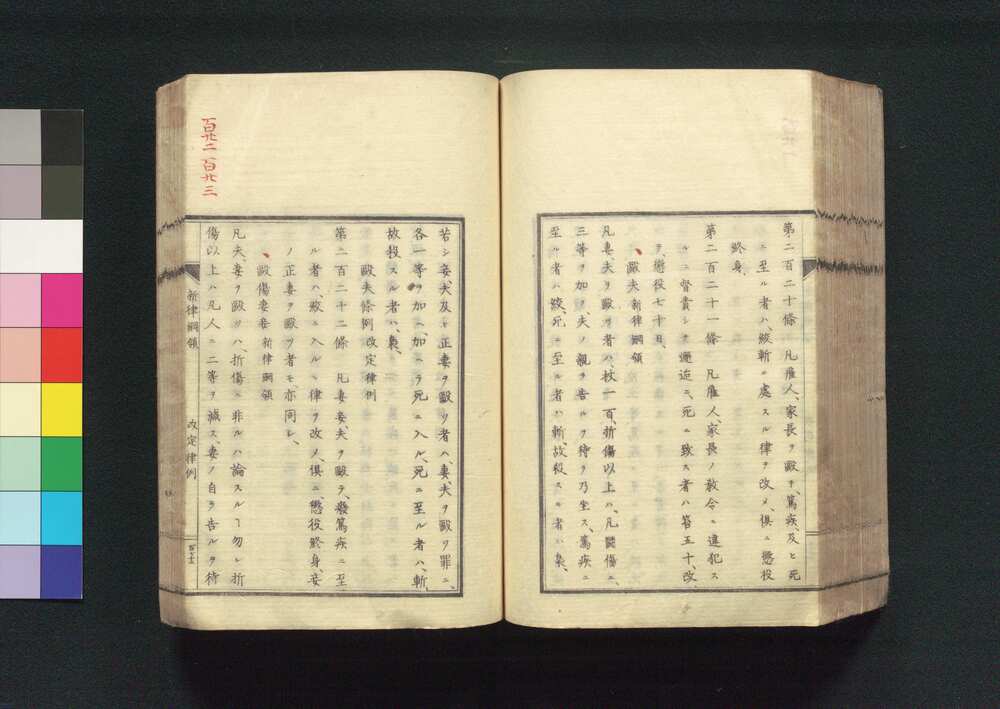 第二百二十條 凡雇人、家長ヲ毆チ、篤疾、及ヒ死
ニ至ル者ハ、絞斬ニ處スル律ヲ改メ、俱ニ懲役
終身、
第二百二十一條 凡雇人、家長ノ敎令ニ違犯ス
ルニ督責シテ邂逅ニ、死ニ致ス者ハ笞五十、改
ヲ、懲役七十日、
毆夫 新律綱領
凡妻、夫ヲ毆ツ者ハ、杖一百、折傷以上ハ、凡鬪傷ニ、
三等ヲ加フ、夫ノ親ラ告ルヲ待テ乃坐ス、篤疾ニ
至ル者ハ絞、死ニ至ル者ハ斬、故殺スル者ハ梟、
若シ妾、夫及ヒ正妻ヲ毆ツ者ハ、妻、夫ヲ毆ツ罪ニ、
各一等ヲ加ヘ、加ヘテ死ニ入ル、死ニ至ル者ハ、斬、
故殺スル者ハ、梟、
毆夫條例 改定律例
第二百二十二條 凡妻妾、夫ヲ毆チ、廢篤疾ニ至
ル者ハ、絞ニ入ルヽ律ヲ改メ、俱ニ懲役終身、妾
ノ正妻ヲ毆ツ者モ、亦同シ、
毆傷妻妾 新律綱領
凡夫、妻ヲ毆ツハ、折傷ニ非ルハ論スルヿ勿レ、折
傷以上ハ凡人ニ二等ヲ減ス、妻ノ自ラ告ルヲ待
百廿二 百廿三
新律綱領 改定律例